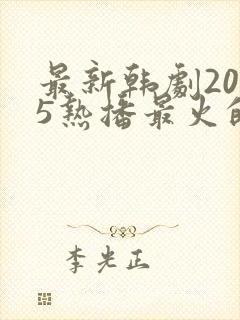 最新韩劇20
5热播最火的
李光正